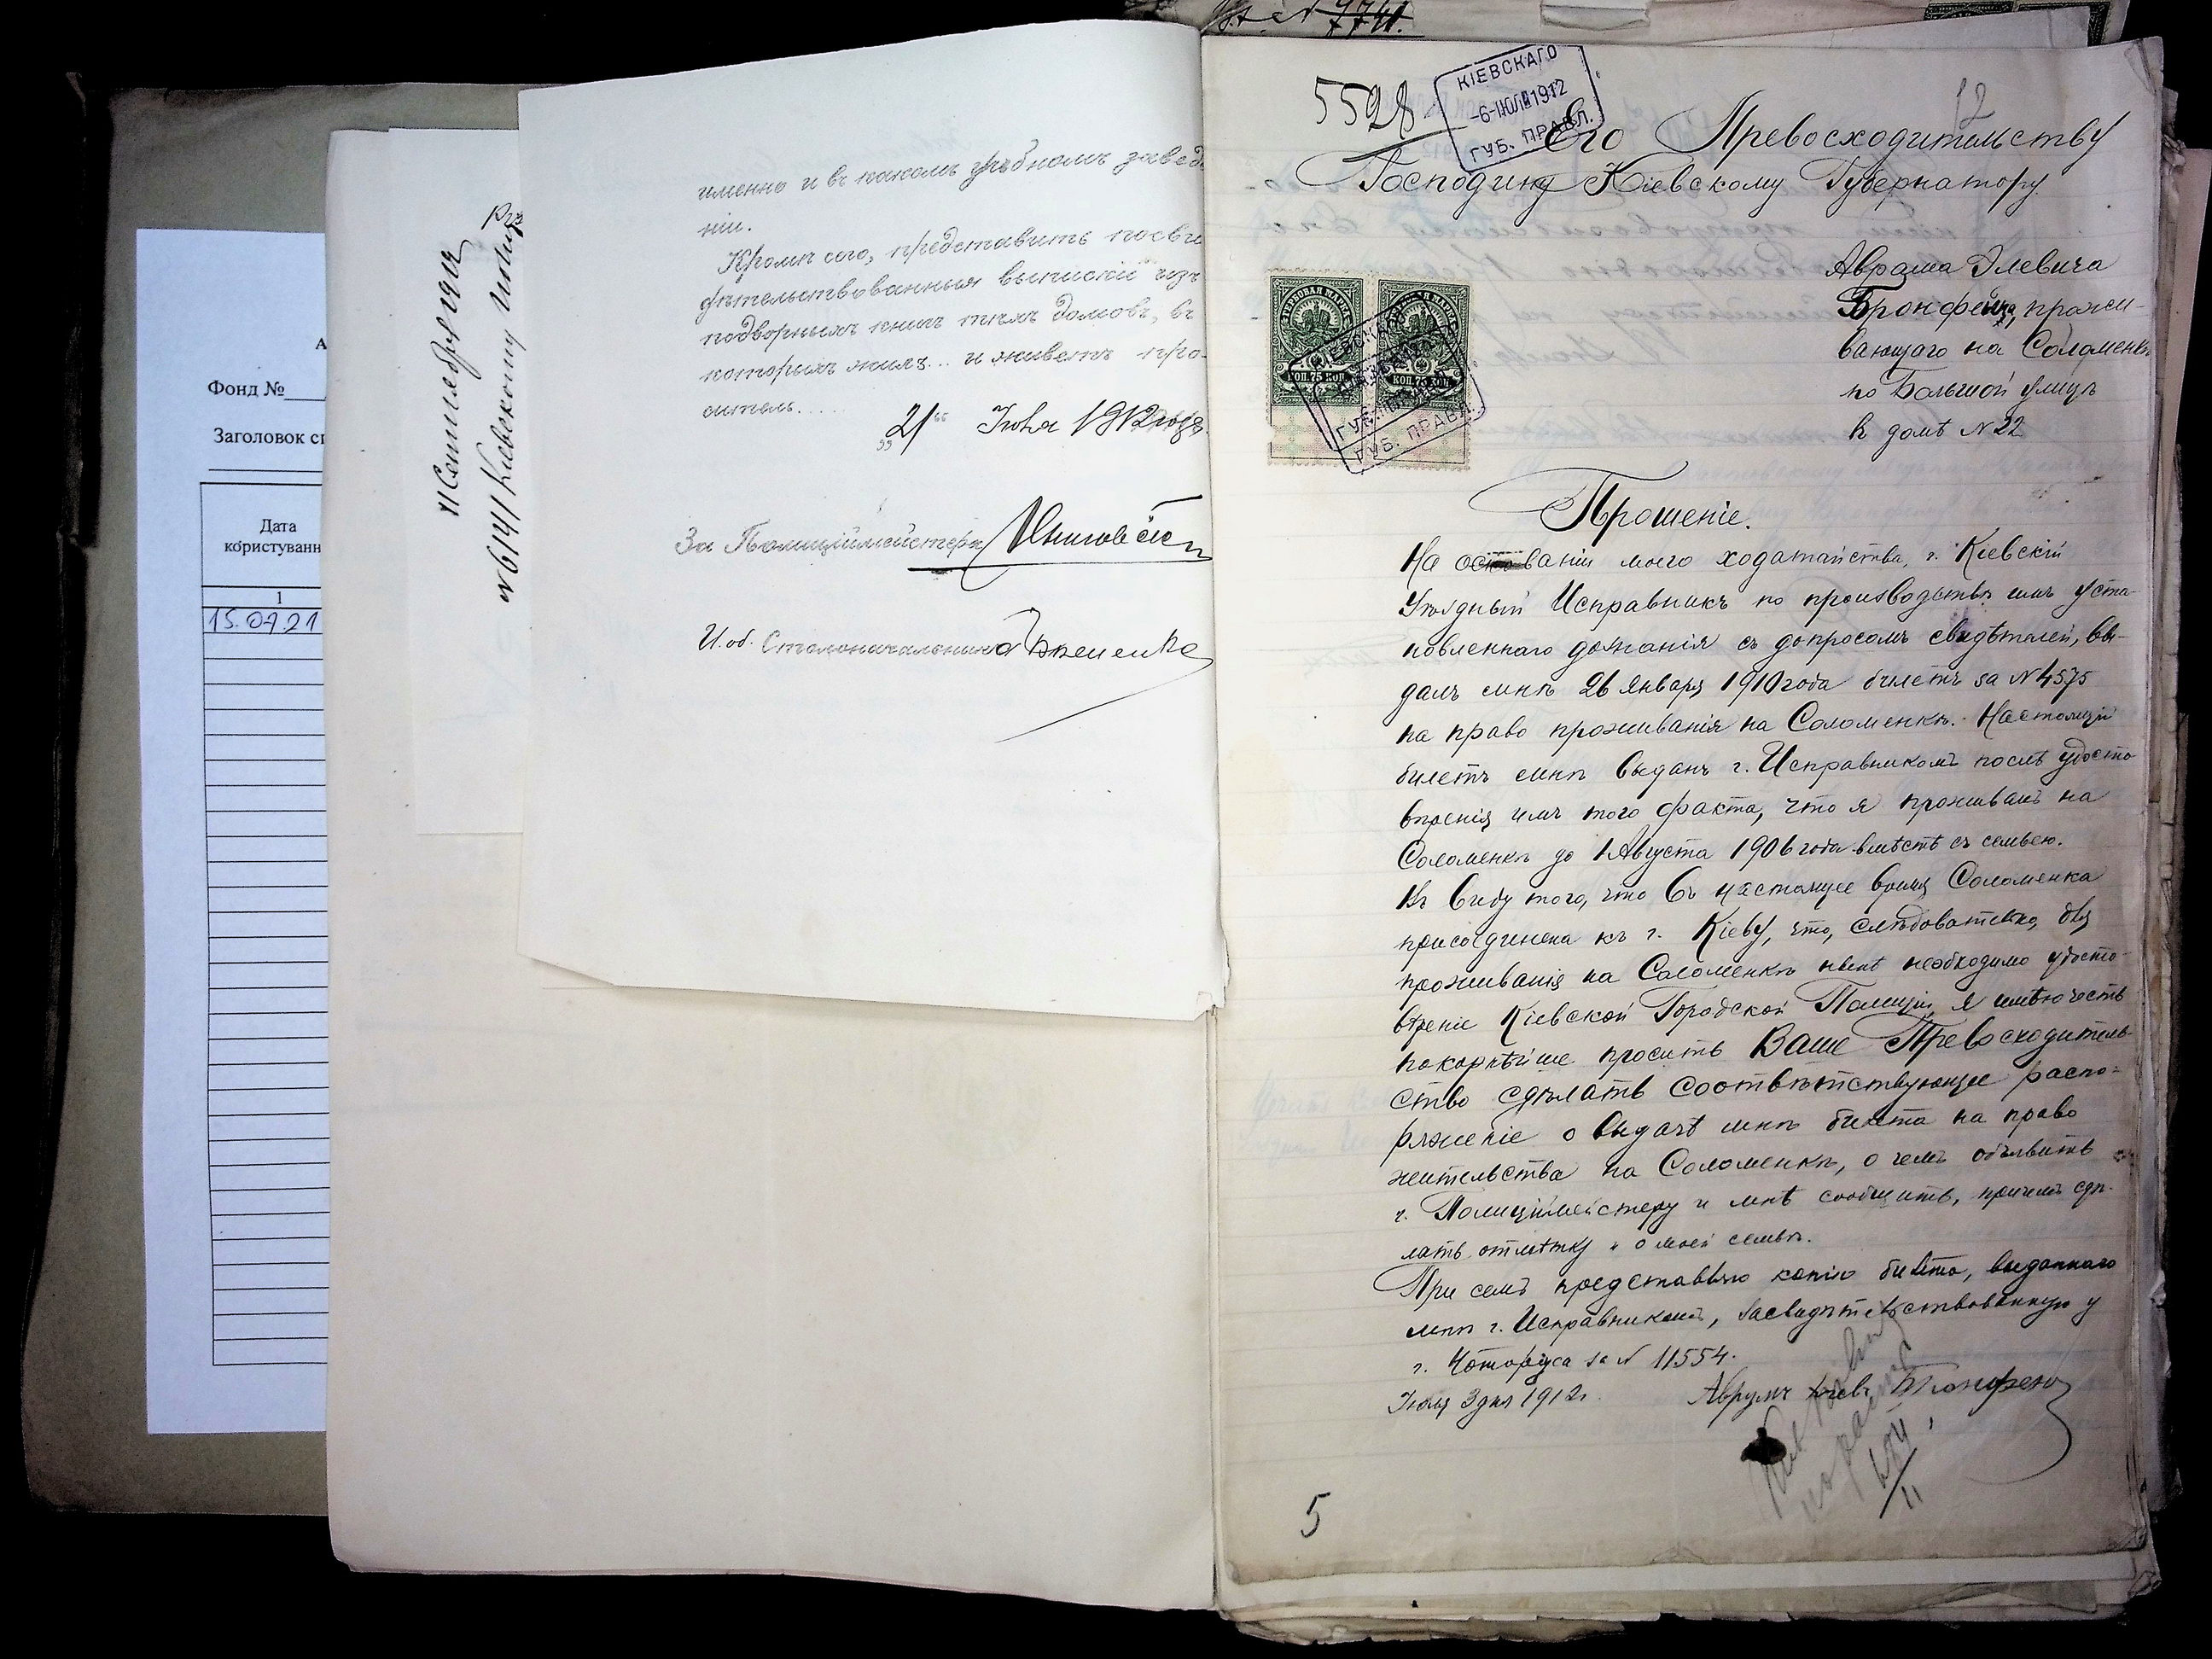 Фонд №
Дата
користуванн
1
15.07.21
11 Сентября 1912
№ 6141 Киевскому
именно и въ какомъ учебномъ завед
ніи.
Кромѣ сего, представить посви
дѣтельствованныя выписки изъ
подворныхъ книгъ тѣхъ домовъ, въ
которыхъ жилъ... и живетъ про-
ситель....
"21" Іюня 1912 года.
За Полиціймейстера
И. об. Столоначальника
5528
КІЕВСКАГО
-6-ІЮЛЯ 1912
ГУБ. ПРАВЛ.
12
Его Превосходительству
Господину Кіевскому Губернатору.
Аврама Элевича
Бронфейна, прожи-
вающаго на Соломенкѣ
по Большой улицѣ
въ домѣ № 22
ГЕРБОВАЯ МАРКА
КОП. 75 КОП.
КОП. 75 КОП.
ГУБ. ПРАВЛ.
Прошеніе.
На основаніи моего ходатайства, г. Кіевскій
Уѣздный Исправникъ по производствѣ имъ уста-
новленнаго дознанія съ допросомъ свидѣтелей, вы-
далъ мнѣ 26 Января 1910 года билетъ за № 4575
на право проживанія на Соломенкѣ. Настоящій
билетъ мнѣ выданъ г. Исправникомъ послѣ удосто
вѣренія имъ того факта, что я проживалъ на
Соломенкѣ до 1 Августа 1906 года вмѣстѣ съ семьею.
Въ виду того, что въ настоящее время Соломенка
присоединена къ г. Кіеву, что, слѣдовательно, для
проживанія на Соломенкѣ мнѣ необходимо удосто-
вѣреніе Кіевской Городской Полиціи, я имѣю честь
покорнѣйше просить Ваше Превосходитель-
ство сдѣлать соотвѣтствующее распо-
ряженіе о выдачѣ мнѣ билета на право
жительства на Соломенкѣ, о чемъ объявить
г. Полиціймейстеру и мнѣ сообщить, причемъ сдѣ-
лать отмѣтку и о моей семьѣ.
При семъ представляю копію билета, выданнаго
мнѣ г. Исправникомъ, засвидѣтельствованную у
г. Нотаріуса за № 11554.
Іюля 3 дня 1912 г. Аврумъ
5